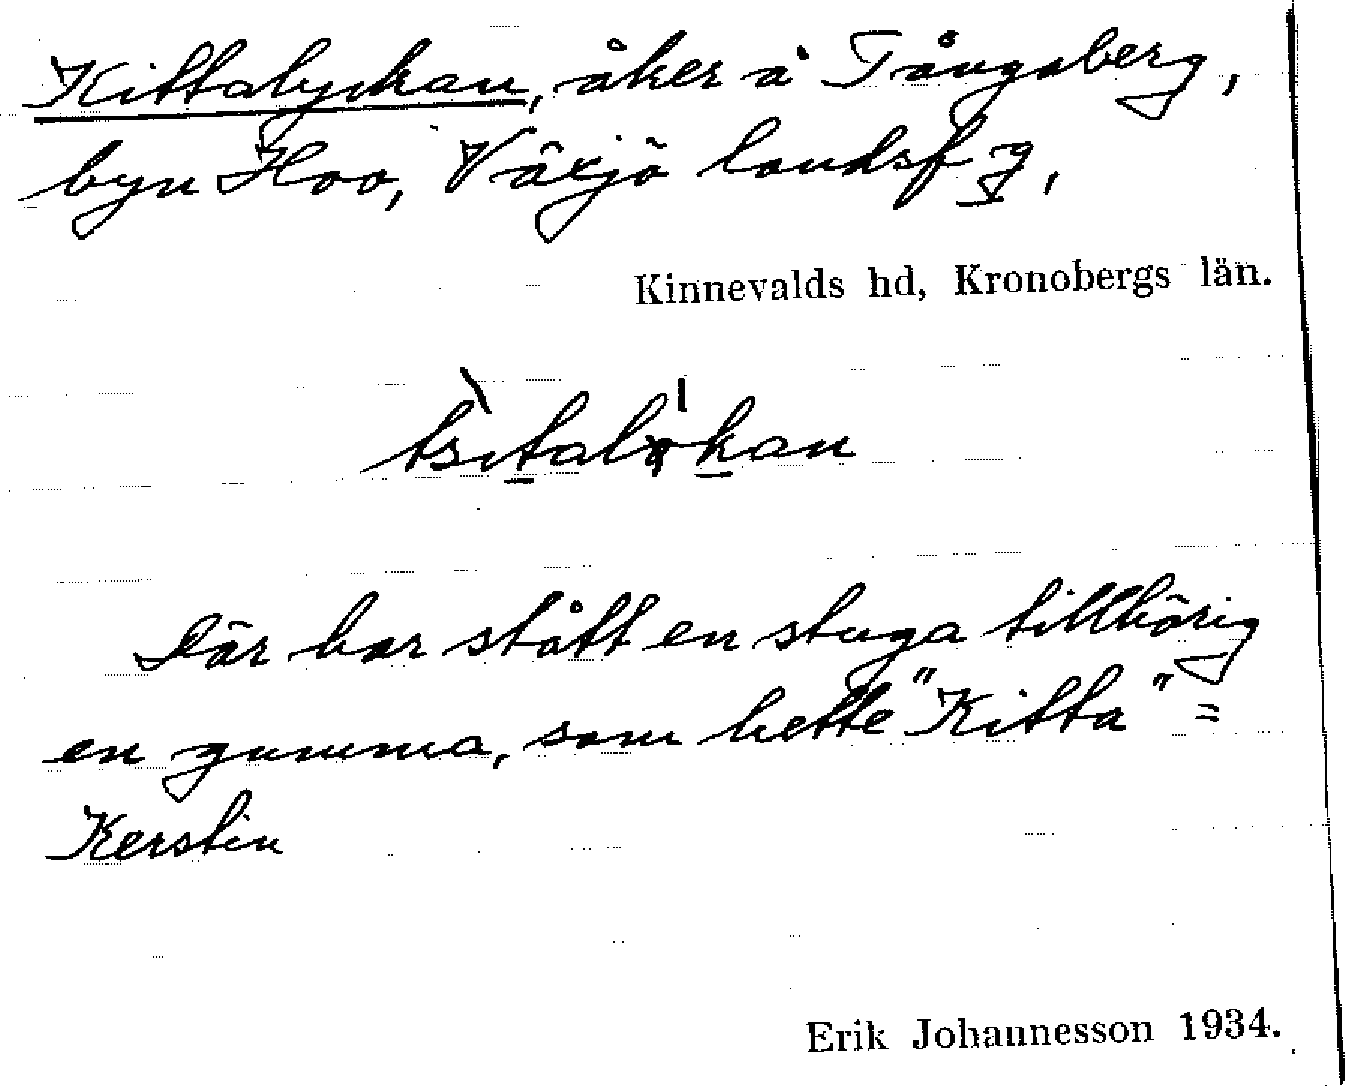 Kittalyckan, åker å Tångaberg,
byn Hoo, Växjö landsfg,
Kinnevalds hd, Kronobergs län.
Där har stått en stuga tillhörig
en gumma, som hette "Kitta" =
Kerstin
Erik Johannesson 1934.